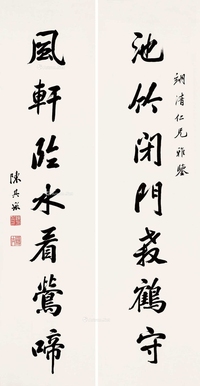 清仁兄雅鑒
池竹閉門教鶴守
風軒臨水看鶯啼
陳